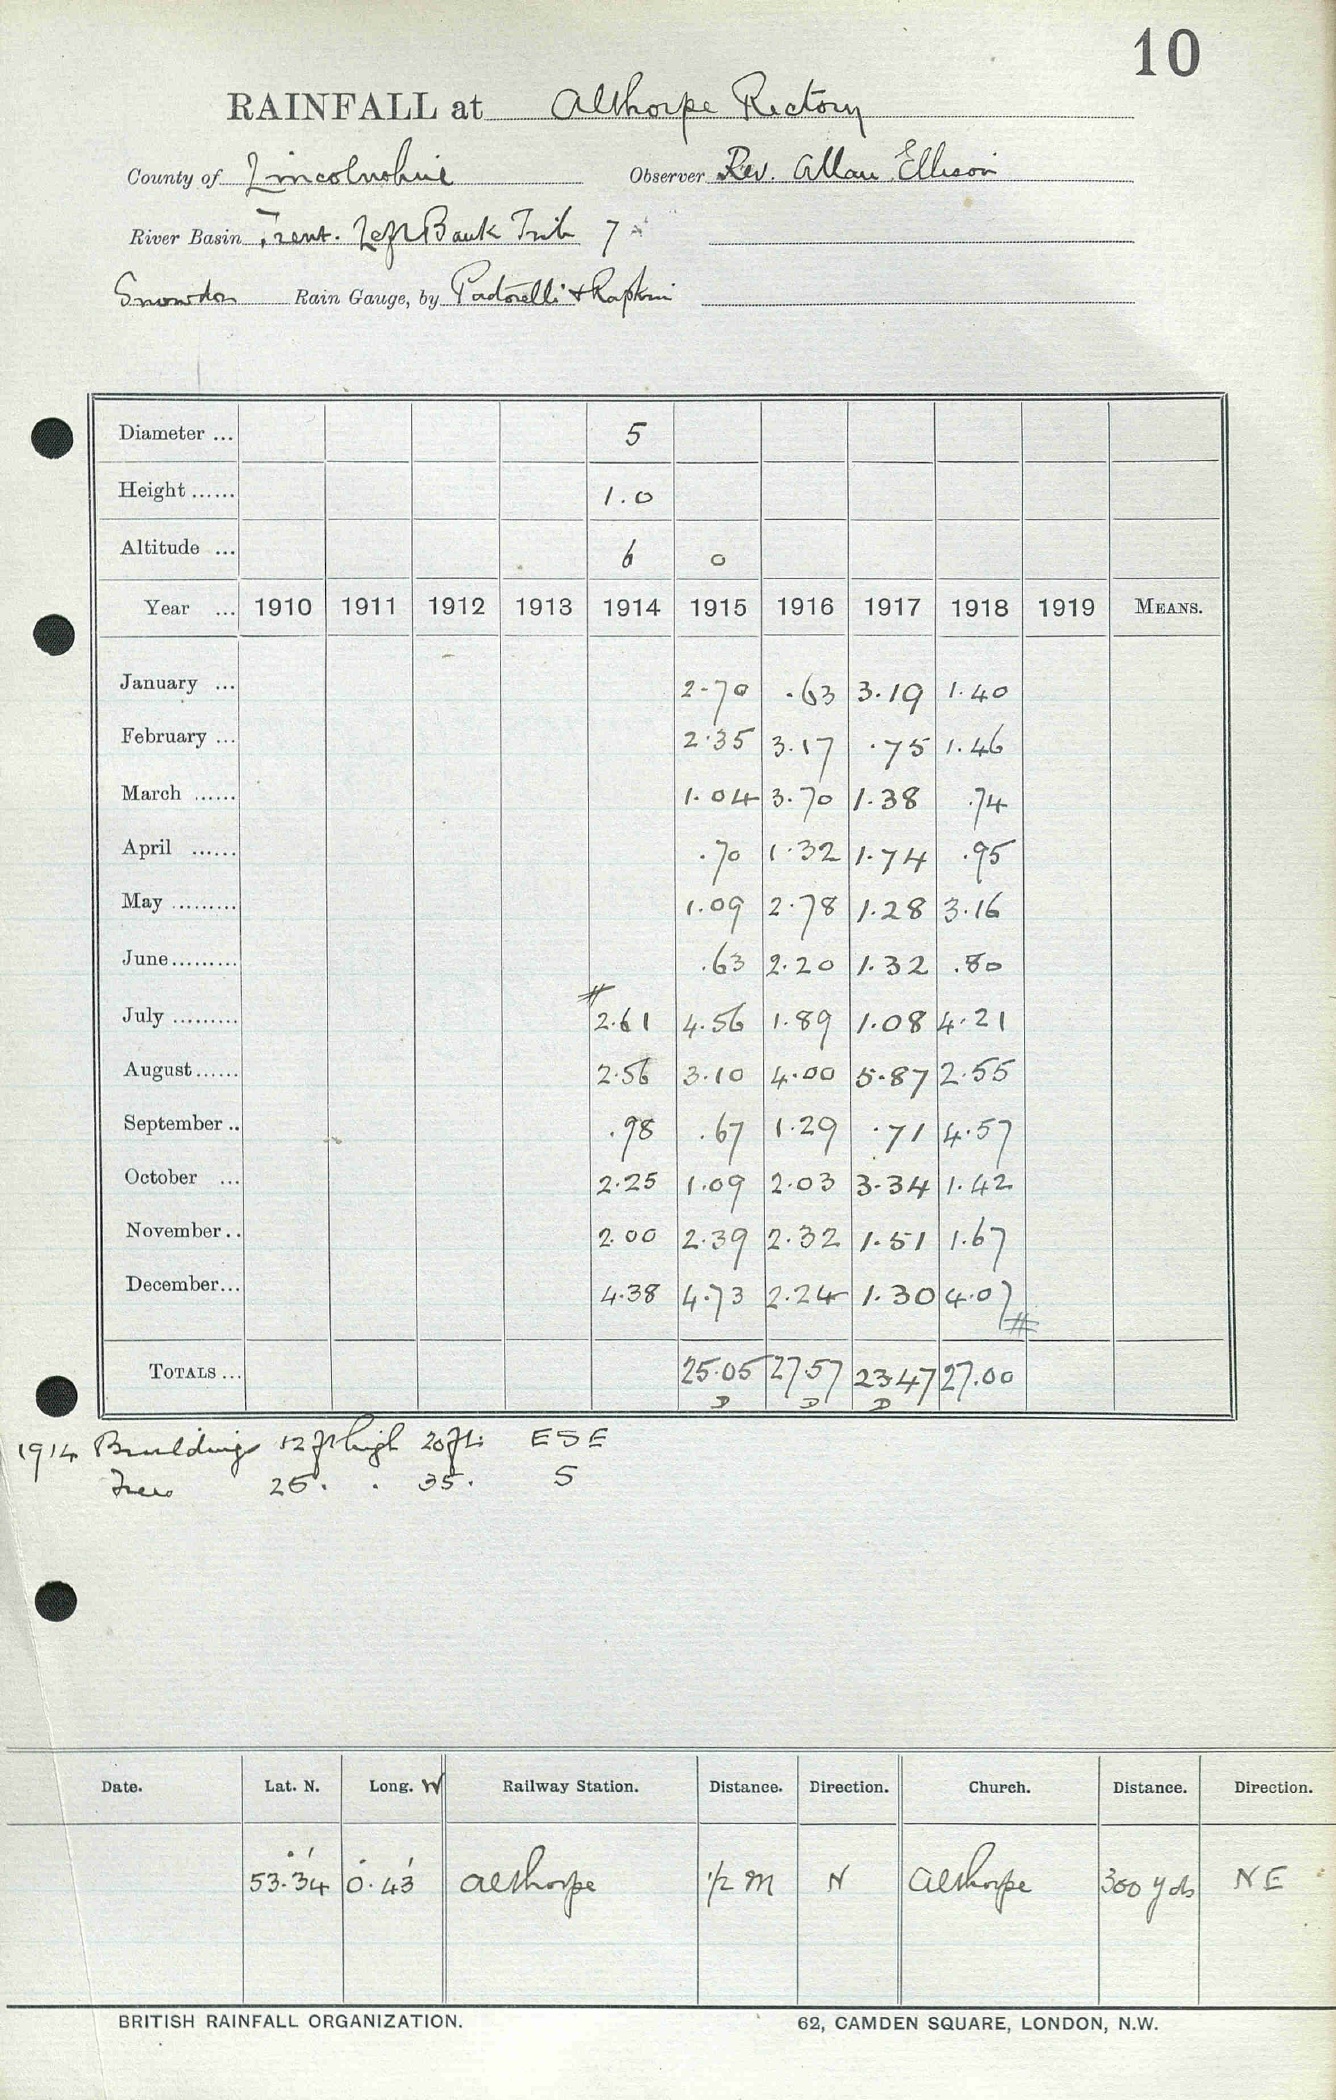 10
RAINFALL at Althorpe Rectory
County of Lincolnshire Observer Rev. Allan Ellison
River Basin Trent. Left Bank Trib 7
Snowdon Rain Gauge, by Pastorelli & Rapkin
Diameter ... 5
Height ...... 1.0
Altitude ... 6 0
Year ... 1910 1911 1912 1913 1914 1915 1916 1917 1918 1919 MEANS.
January ... 2.70 .63 3.19 1.40
February ... 2.35 3.17 .75 1.46
March ...... 1.04 3.70 1.38 .74
April ...... .70 1.32 1.74 .95
May ......... 1.09 2.78 1.28 3.16
June......... .63 2.20 1.32 .80
July ......... # 2.61 4.56 1.89 1.08 4.21
August...... 2.56 3.10 4.00 5.87 2.55
September .. .98 .67 1.29 .71 4.57
October ... 2.25 1.09 2.03 3.34 1.42
November.. 2.00 2.39 2.32 1.51 1.67
December... 4.38 4.73 2.24 1.30 4.07 #
TOTALS ... 25.05 27.57 23.47 27.00
D D D
1914 Buildings 12 ft high 20 ft. ESE
Trees 25 . . 35 . S
Date. Lat. N. Long. W Railway Station. Distance. Direction. Church. Distance. Direction.
53°.34' 0°.43' Althorpe 1/2 M N Althorpe 300 yds NE
BRITISH RAINFALL ORGANIZATION. 62, CAMDEN SQUARE, LONDON, N.W.